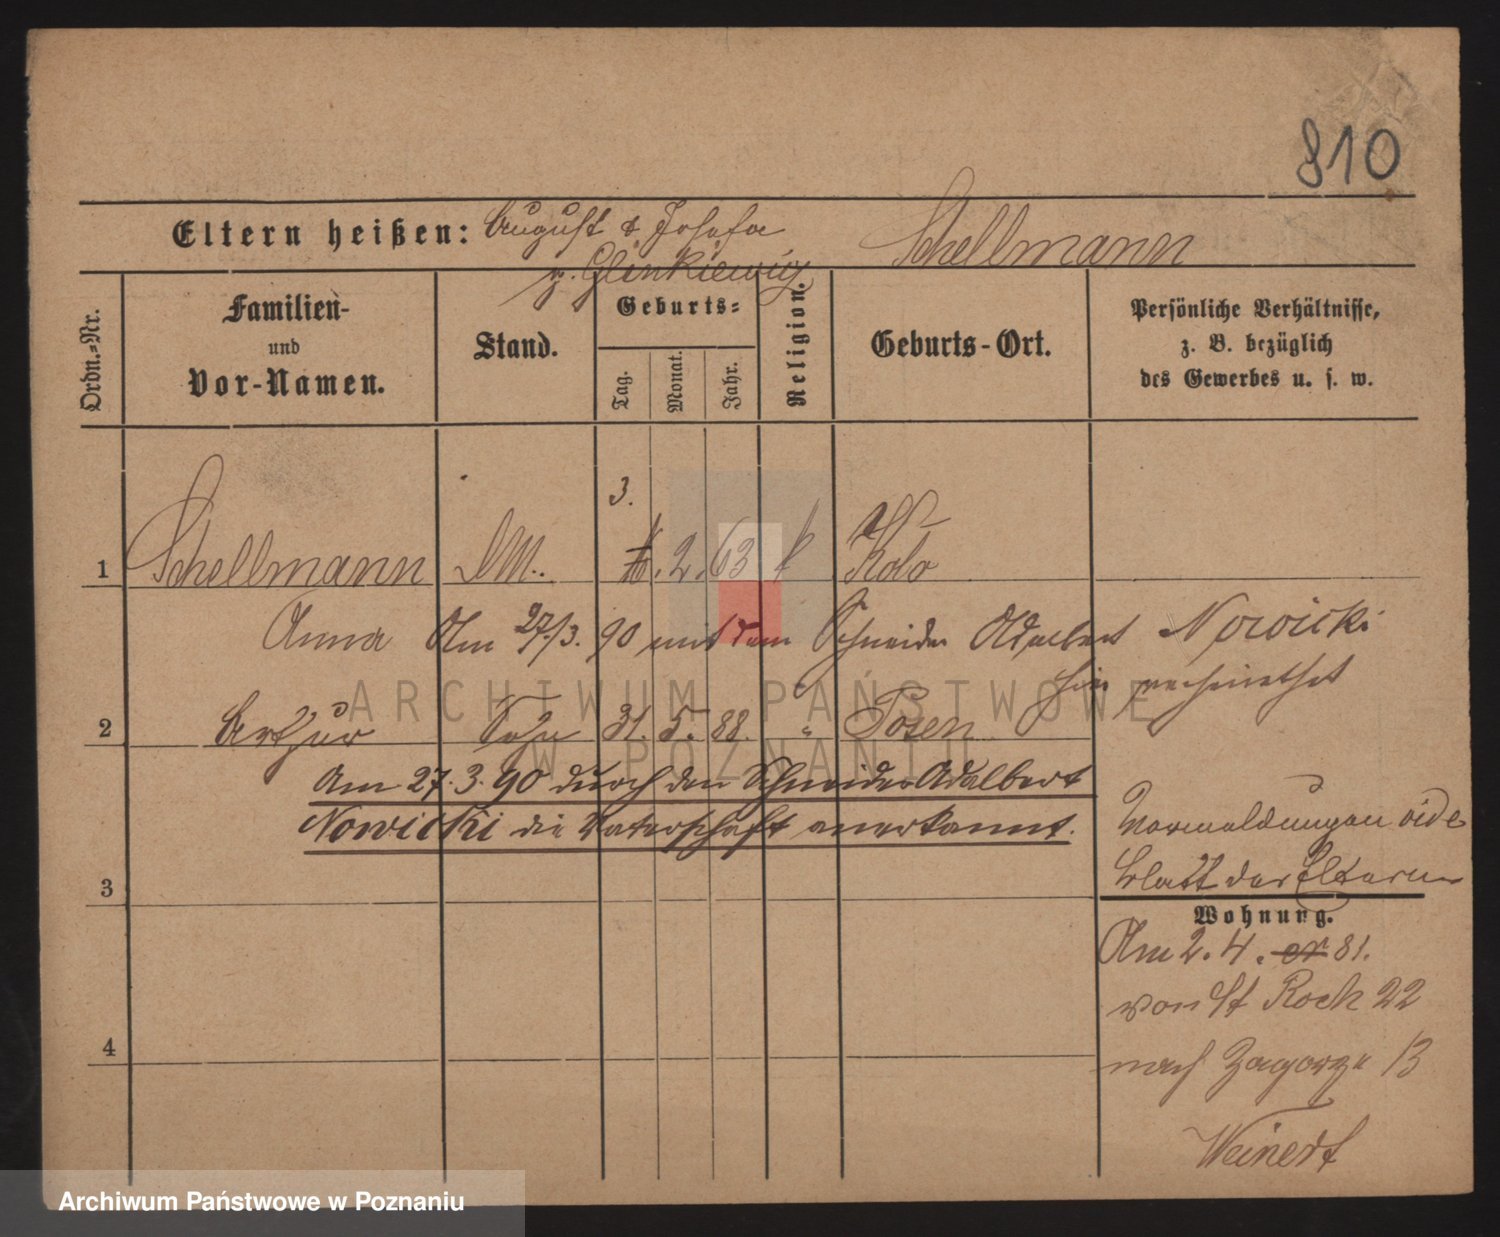 810
Eltern heißen: August & Josefa Schellmann
g. Glinkiewicz
Ordn.-Nr.
Familien- und Vor-Namen.
Stand.
Geburts-
Tag. Monat. Jahr.
Religion.
Geburts-Ort.
Persönliche Verhältnisse,
z. B. bezüglich
des Gewerbes u. s. w.
3.
1 Schellmann 2. 63 k Kolo
Anna Am 27/3. 90 mit dem Schneider Adalbert Nowicki
hier verheirathet
2 Arthur Sohn 31. 5. 88. " Posen
Am 27.3.90 durch den Schneider Adalbert
Nowicki die Vaterschaft anerkannt.
Vormeldungen vide
Blatt der Eltern
3
Wohnung.
Am 2. 4. cr 81.
von St Roch 22
nach Zagorze 13
4
Weinert
ARCHIWUM PAŃSTWOWE
W POZNANIU
Archiwum Państwowe w Poznaniu